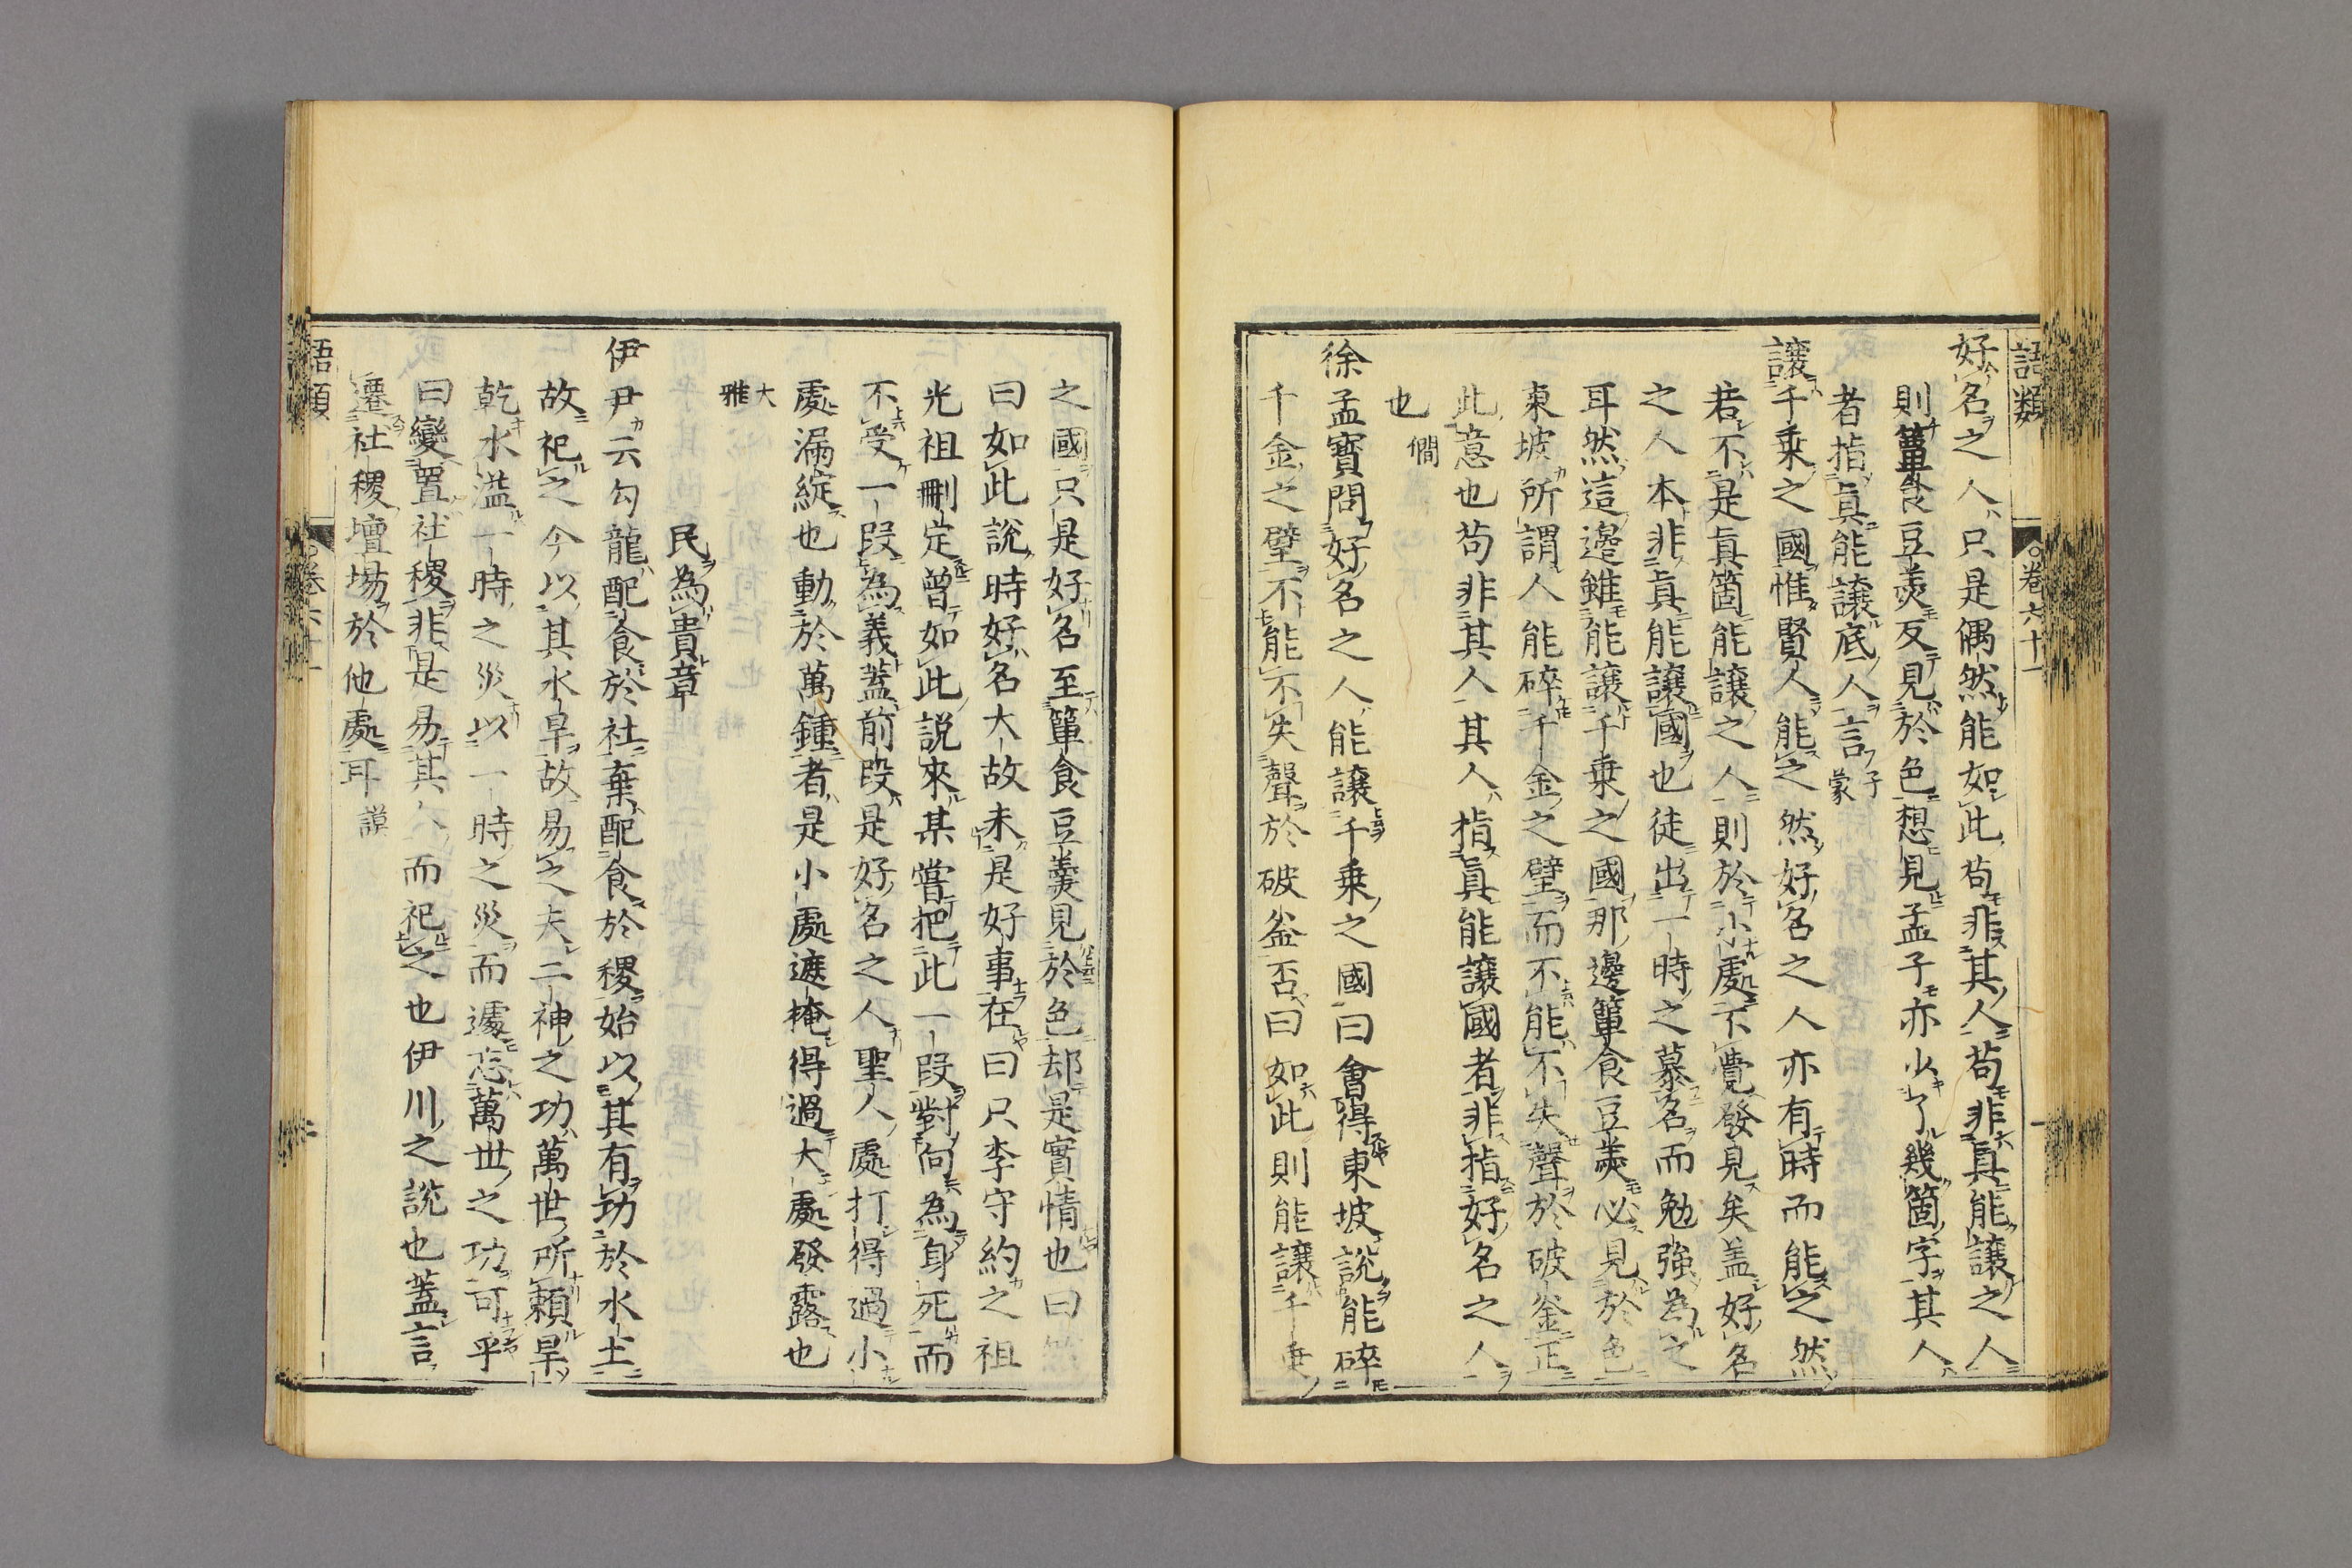 語類
卷六十一
好名之人只是偶然能如此苟非其人苟非真能讓之人
則簞食豆羹反見於色想見孟子亦少了幾箇字其人
者指真能讓底人言子蒙
讓千乗之國惟賢人能之然好名之人亦有時而能之然
若不是真箇能讓之人則於小處不覺發見矣盖好名
之人本非真能讓國也徒出一時之慕名而勉強為之
耳然這邊雖能讓千乗之國那邊簞食豆羹必見於色
東坡所謂人能碎千金之璧而不能不失聲於破釜正
此意也苟非其人其人指真能讓國者非指好名之人
也僩
徐孟寶問好名之人能讓千乗之國曰會得東坡說能碎
千金之璧不能不失聲於破釜否曰如此則能讓千乗
之國只是好名至簞食豆羹見於色却是實情也曰然
曰如此說時好名大故未是好事在曰只李守約之祖
光祖刪定曾如此說來某嘗把此一段對向為身死而
不受一段為義蓋前段是好名之人聖人處打得過小
處漏綻也動於萬鍾者是小處遮掩得過大處發露也
大雅
民為貴章
伊尹云勾龍配食於社棄配食於稷始以其有功於水土
故祀之今以其水旱故易之夫二神之功萬世所頼旱
乾水溢一時之災以一時之災而遽忘萬世之功可乎
曰變置社稷非是易其人而祀之也伊川之說也蓋言
遷社稷壇場於他處耳謨
語類
卷六十一